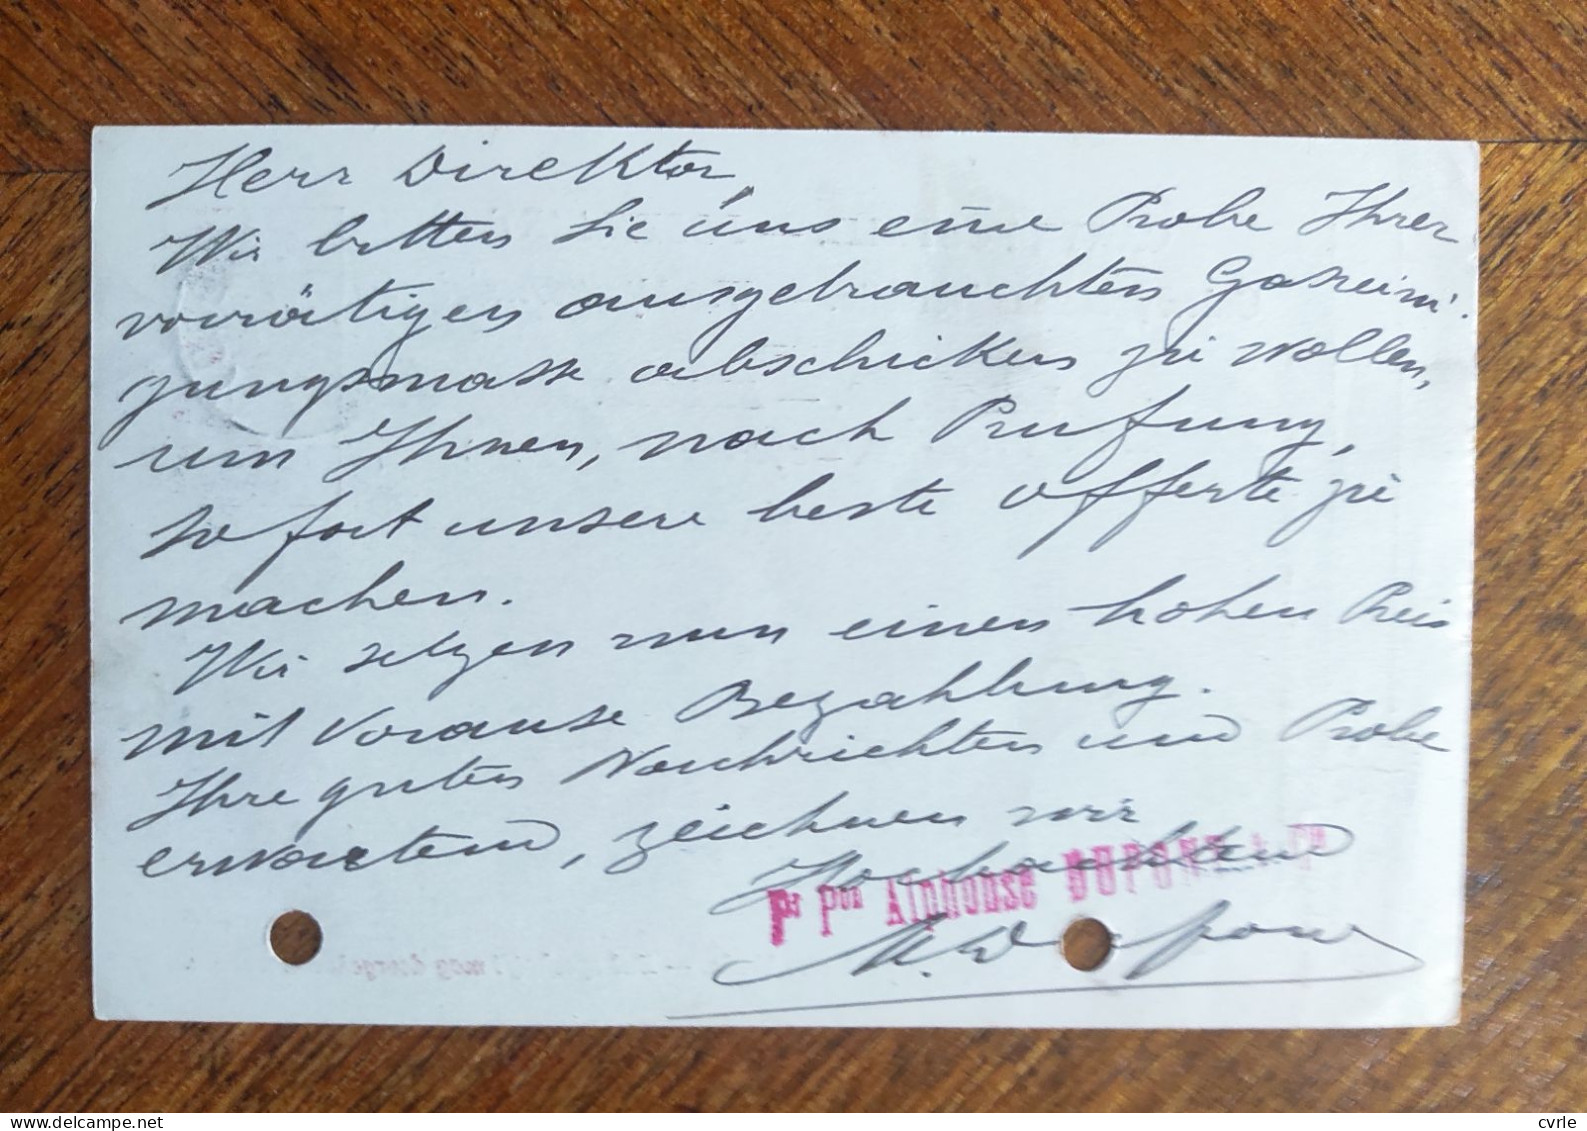 Herr Direktor,
Wir bitten Sie uns eine Probe Ihrer
vorrätigen ausgebrauchten Gasreini-
gungsmasse abschicken zu wollen,
um Ihnen, nach Prufung,
sofort unsere beste Offerte zu
machen.
Wir setzen nun einen hohen Preis
mit Vorause Bezahlung.
Ihre guten Nachrichten und Probe
erwartend, zeichnen wir
Hochachtend
Pr Pon Alphonse DUPONT & Cie
A. Dupont
cvrle